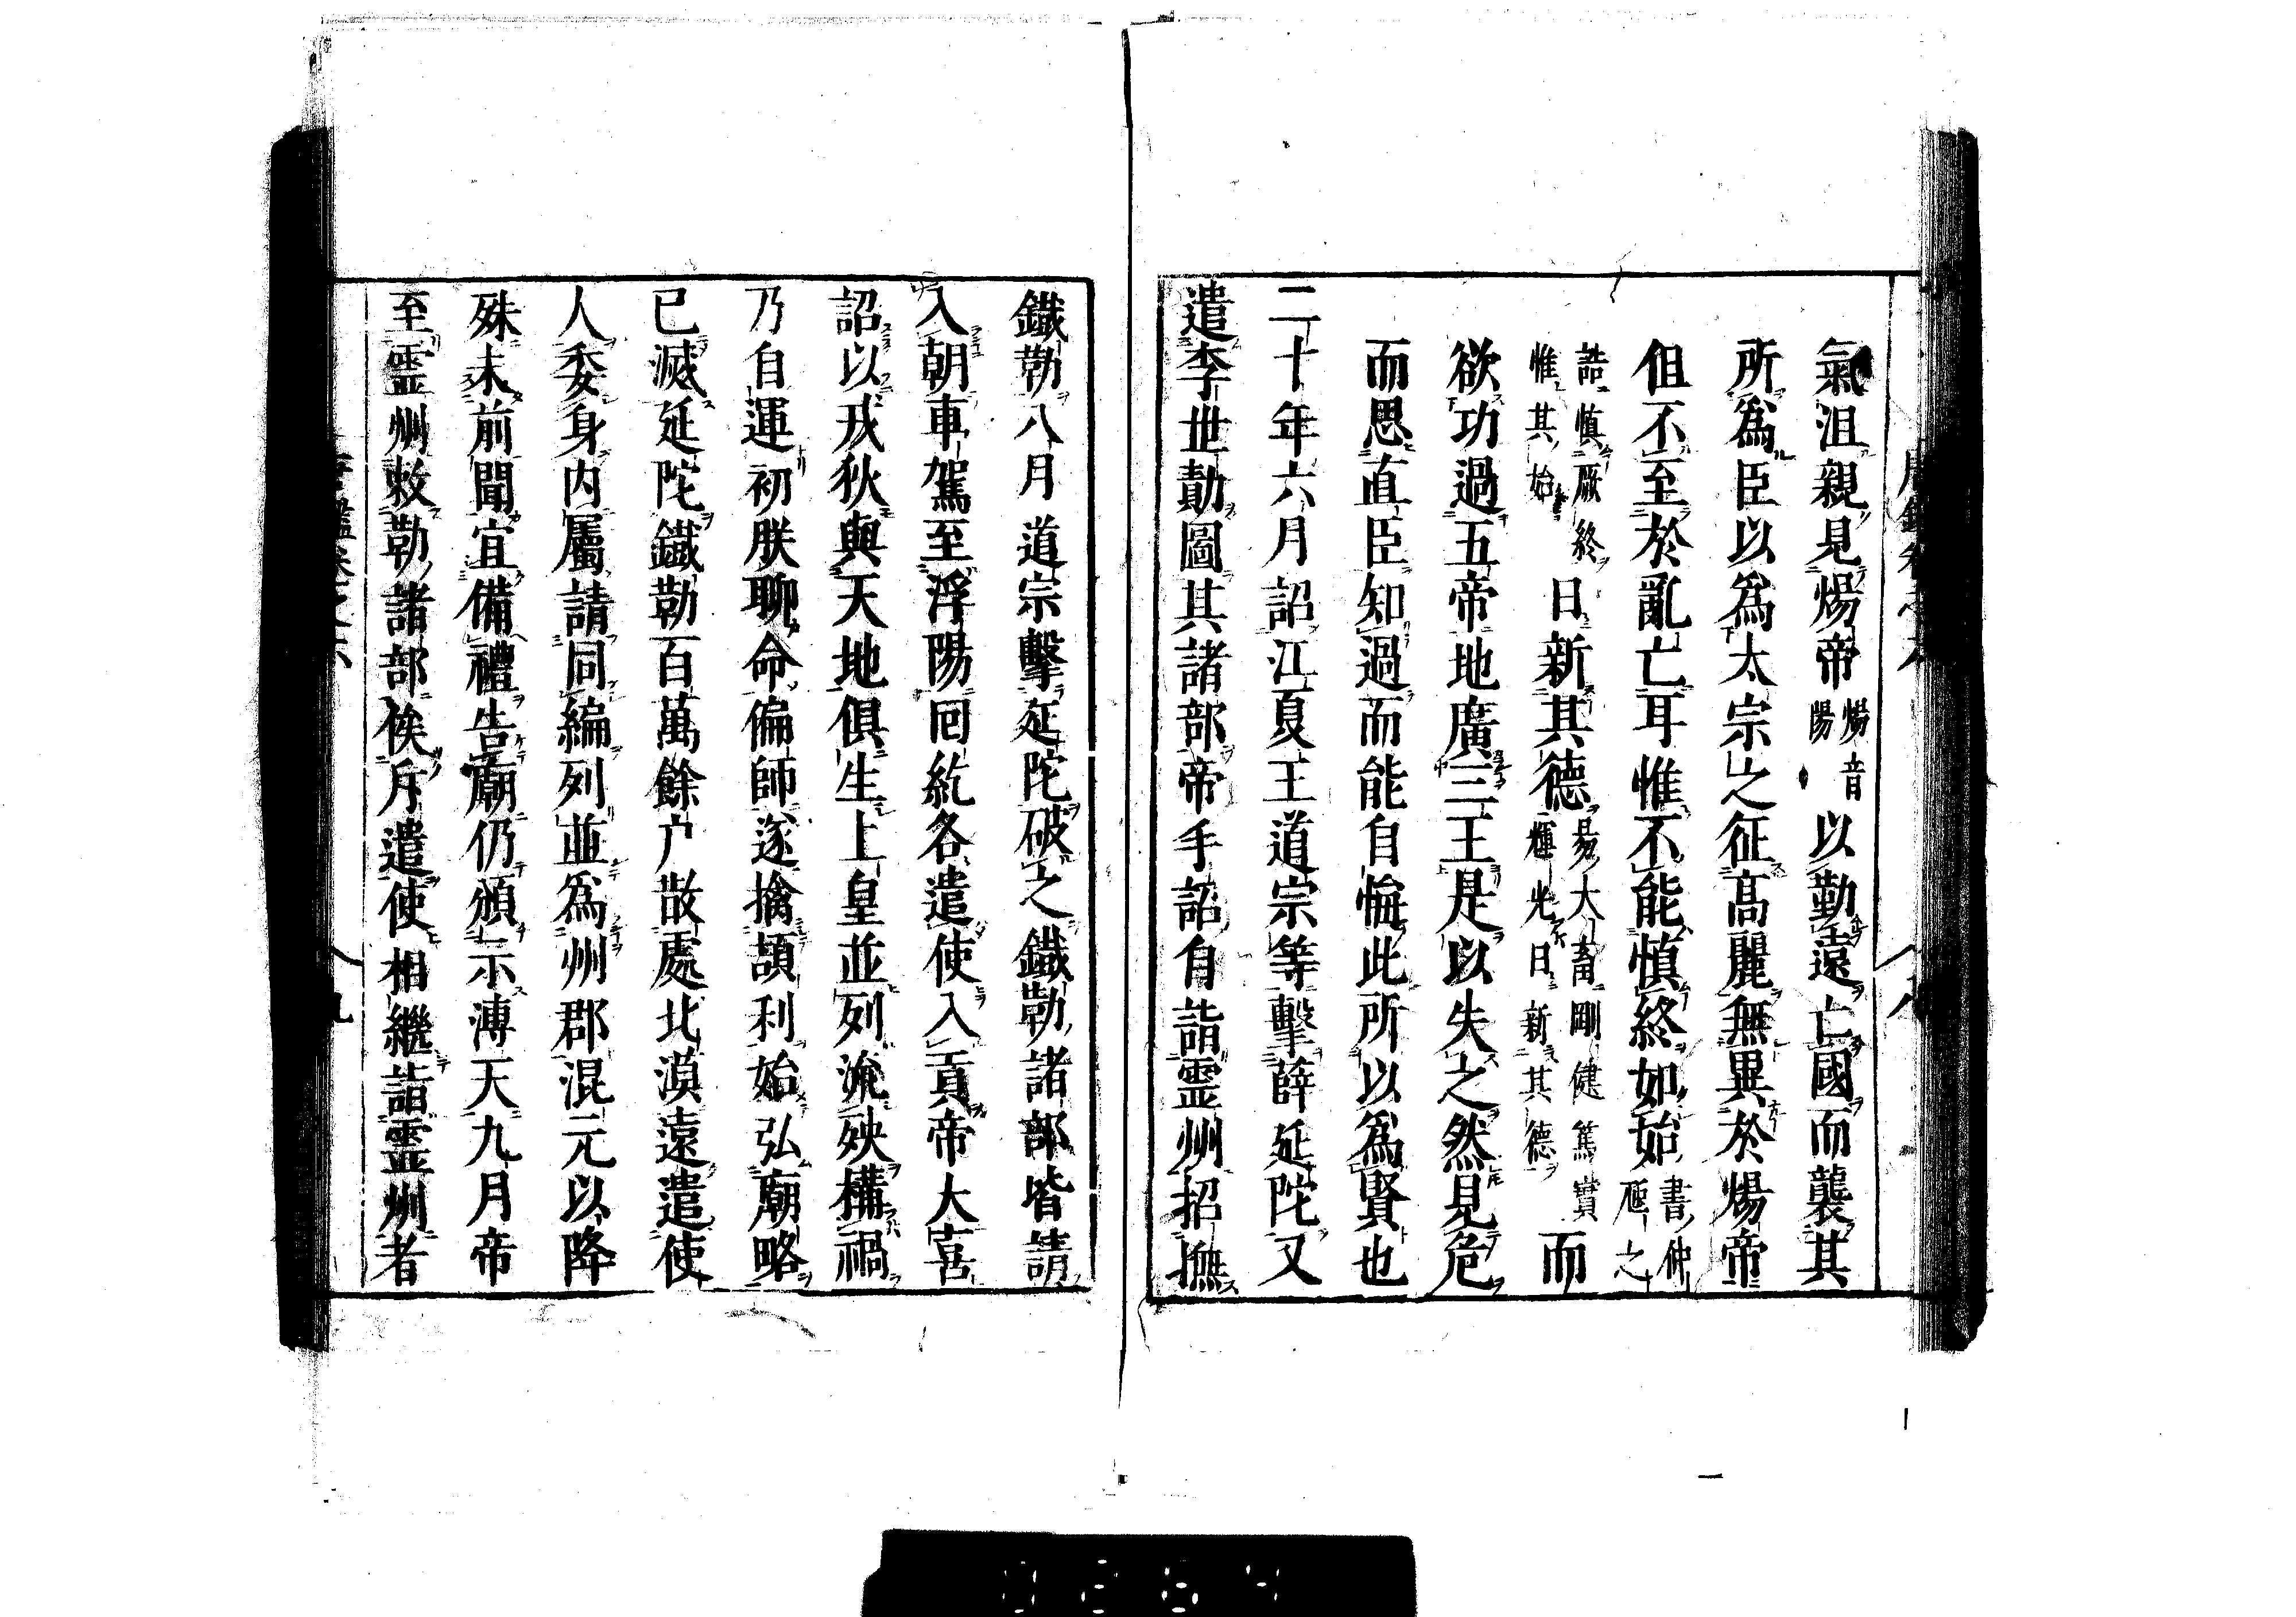 氣沮親見煬帝煬音陽以勤遠亡國而襲其
所爲臣以爲太宗之征髙麗無異於煬帝
但不至於亂亡耳惟不能慎終如始書仲虺之
誥慎厥終惟其始日新其德易大畜剛健篤實輝光日新其德而
欲功過五帝地廣三王是以失之然見危
而思直臣知過而能自悔此所以爲賢也
二十年六月詔江夏王道宗等擊薛延陀又
遣李世勣圖其諸部帝手詔自詣靈州招撫
鐵勒八月道宗擊延陀破之鐵勒諸部皆請
入朝車駕至浮陽回紇各遣使入貢帝大喜
詔以戎狄與天地俱生上皇並列流殃構禍
乃自運初朕聊命偏師遂擒頡利始弘廟略
已滅延陀鐵勒百萬餘户散處北漠遠遣使
人委身内屬請同編列並爲州郡混元以降
殊未前聞宜備禮告廟仍頒示溥天九月帝
至靈州敕勒諸部俟斤遣使相繼詣靈州者